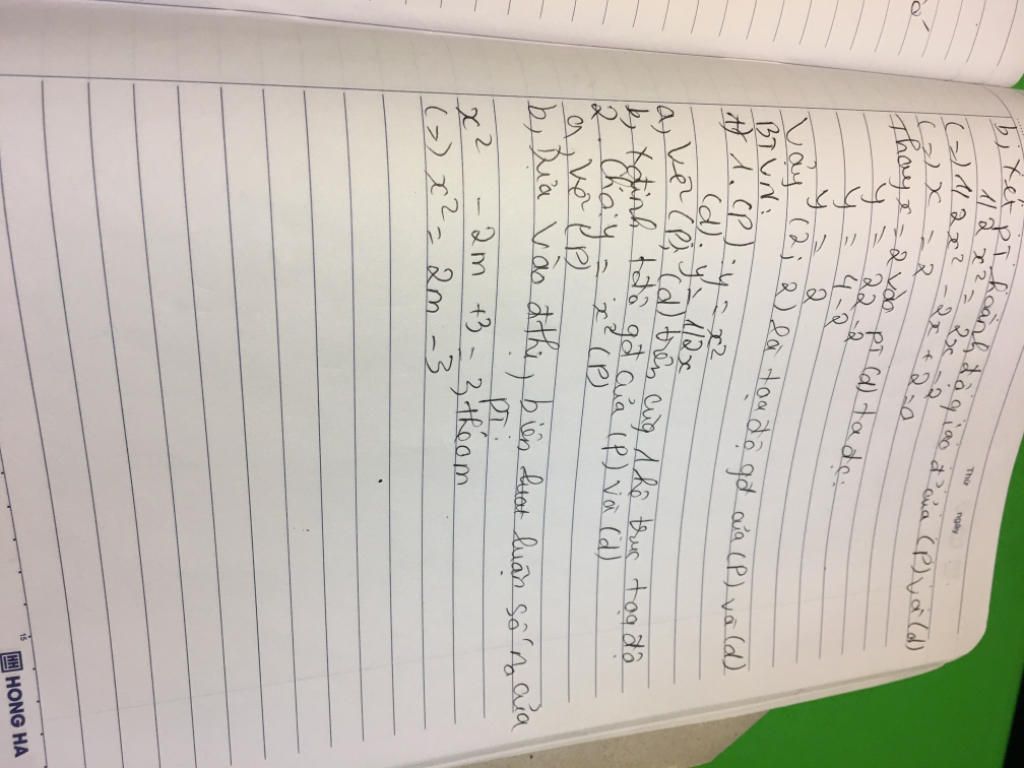 Thứ
ngày
b, Xét PT hoành độ giao đ' của (P) và (d)
1/2 x² = 2x - 2
(=) 1/2x² - 2x + 2 = 0
(=) x = 2
Thay x = 2 vào PT (d) ta đc:
y = 2.2 - 2
y = 4 - 2
y = 2
Vậy (2; 2) là toạ độ gđ của (P) và (d)
BTVN:
1. (P): y = x²
(d): y = 1/2x
a, Vẽ (P), (d) trên cùng 1 hệ trục toạ độ
b, Xđịnh tđộ gđ của (P) và (d)
2. Cho y = x² (P)
a, vẽ (P)
b, Dựa vào đthị, biện luận số n₀ của
PT:
x² - 2m + 3 = 3 theo m
(=) x² = 2m - 3
15
HONG HA